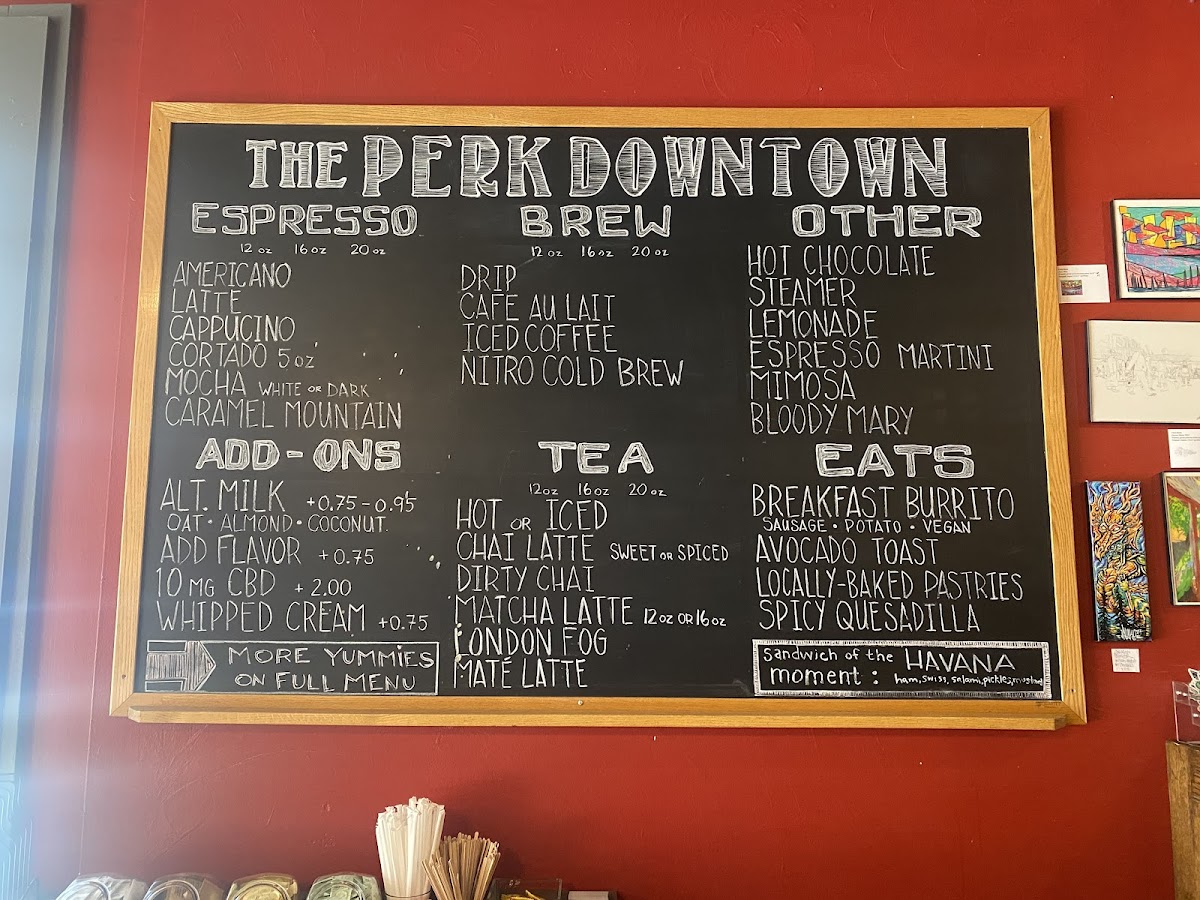 THE PERK DOWNTOWN
ESPRESSO
12 oz 16 oz 20 oz
AMERICANO
LATTE
CAPPUCINO
CORTADO 5 oz
MOCHA WHITE OR DARK
CARAMEL MOUNTAIN
ADD-ONS
ALT. MILK +0.75-0.95
OAT • ALMOND • COCONUT
ADD FLAVOR +0.75
10 MG CBD +2.00
WHIPPED CREAM +0.75
MORE YUMMIES
ON FULL MENU
BREW
12 oz 16 oz 20 oz
DRIP
CAFE AU LAIT
ICED COFFEE
NITRO COLD BREW
TEA
12oz 16 oz 20 oz
HOT OR ICED
CHAI LATTE SWEET OR SPICED
DIRTY CHAI
MATCHA LATTE 12 oz OR 16 oz
LONDON FOG
MATÉ LATTE
OTHER
HOT CHOCOLATE
STEAMER
LEMONADE
ESPRESSO MARTINI
MIMOSA
BLOODY MARY
EATS
BREAKFAST BURRITO
SAUSAGE • POTATO • VEGAN
AVOCADO TOAST
LOCALLY-BAKED PASTRIES
SPICY QUESADILLA
Sandwich of the HAVANA
moment : ham, swiss, salami, pickles, mustard